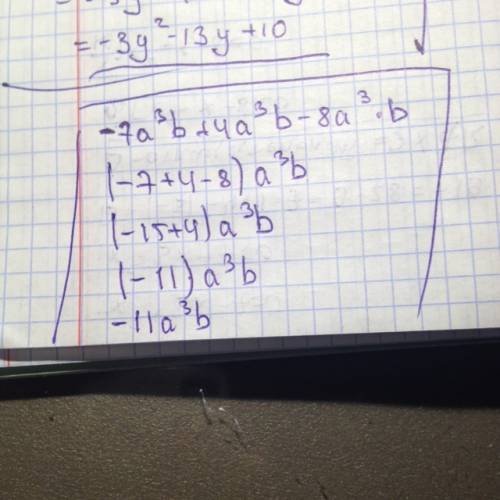 = -3y² -13y +10
-7a³b + 4a³b - 8a³ · b
(-7+4-8) a³b
(-15+4) a³b
(-11) a³b
-11a³b